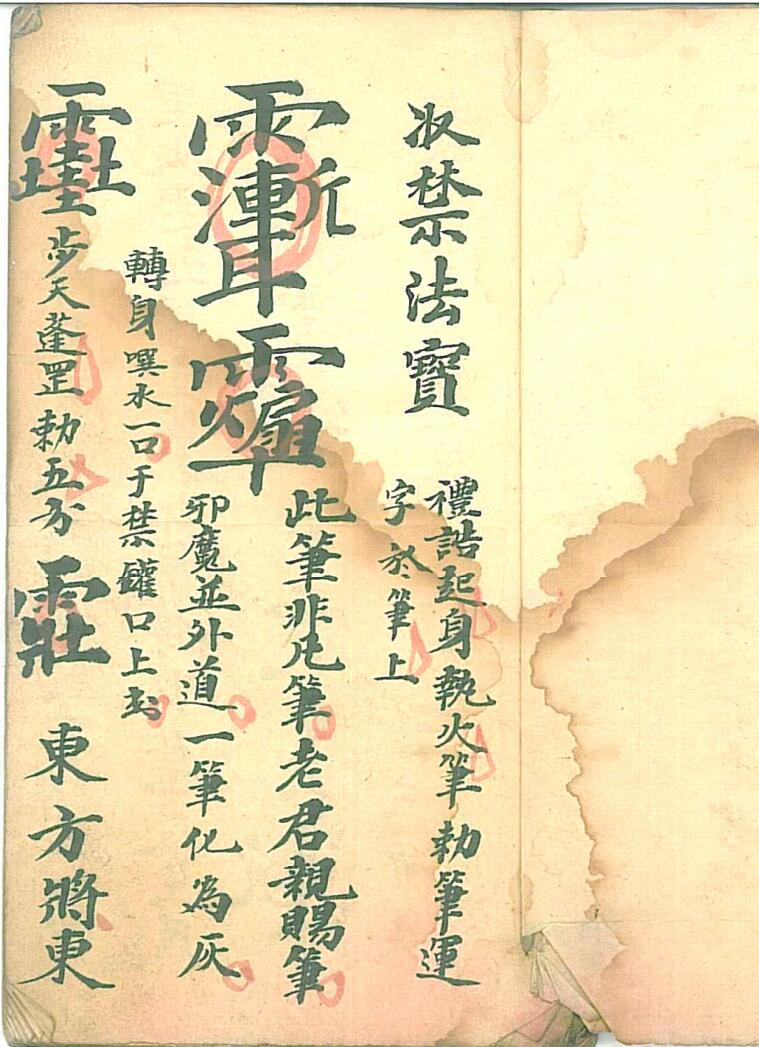 收禁法寶
禮誥起身執火筆勅筆運
字於筆上
此筆非凡筆老君親賜筆
邪魔並外道一筆化為灰
轉身噀水一口于禁罐口上書
步天蓬罡勅五方
東方將東